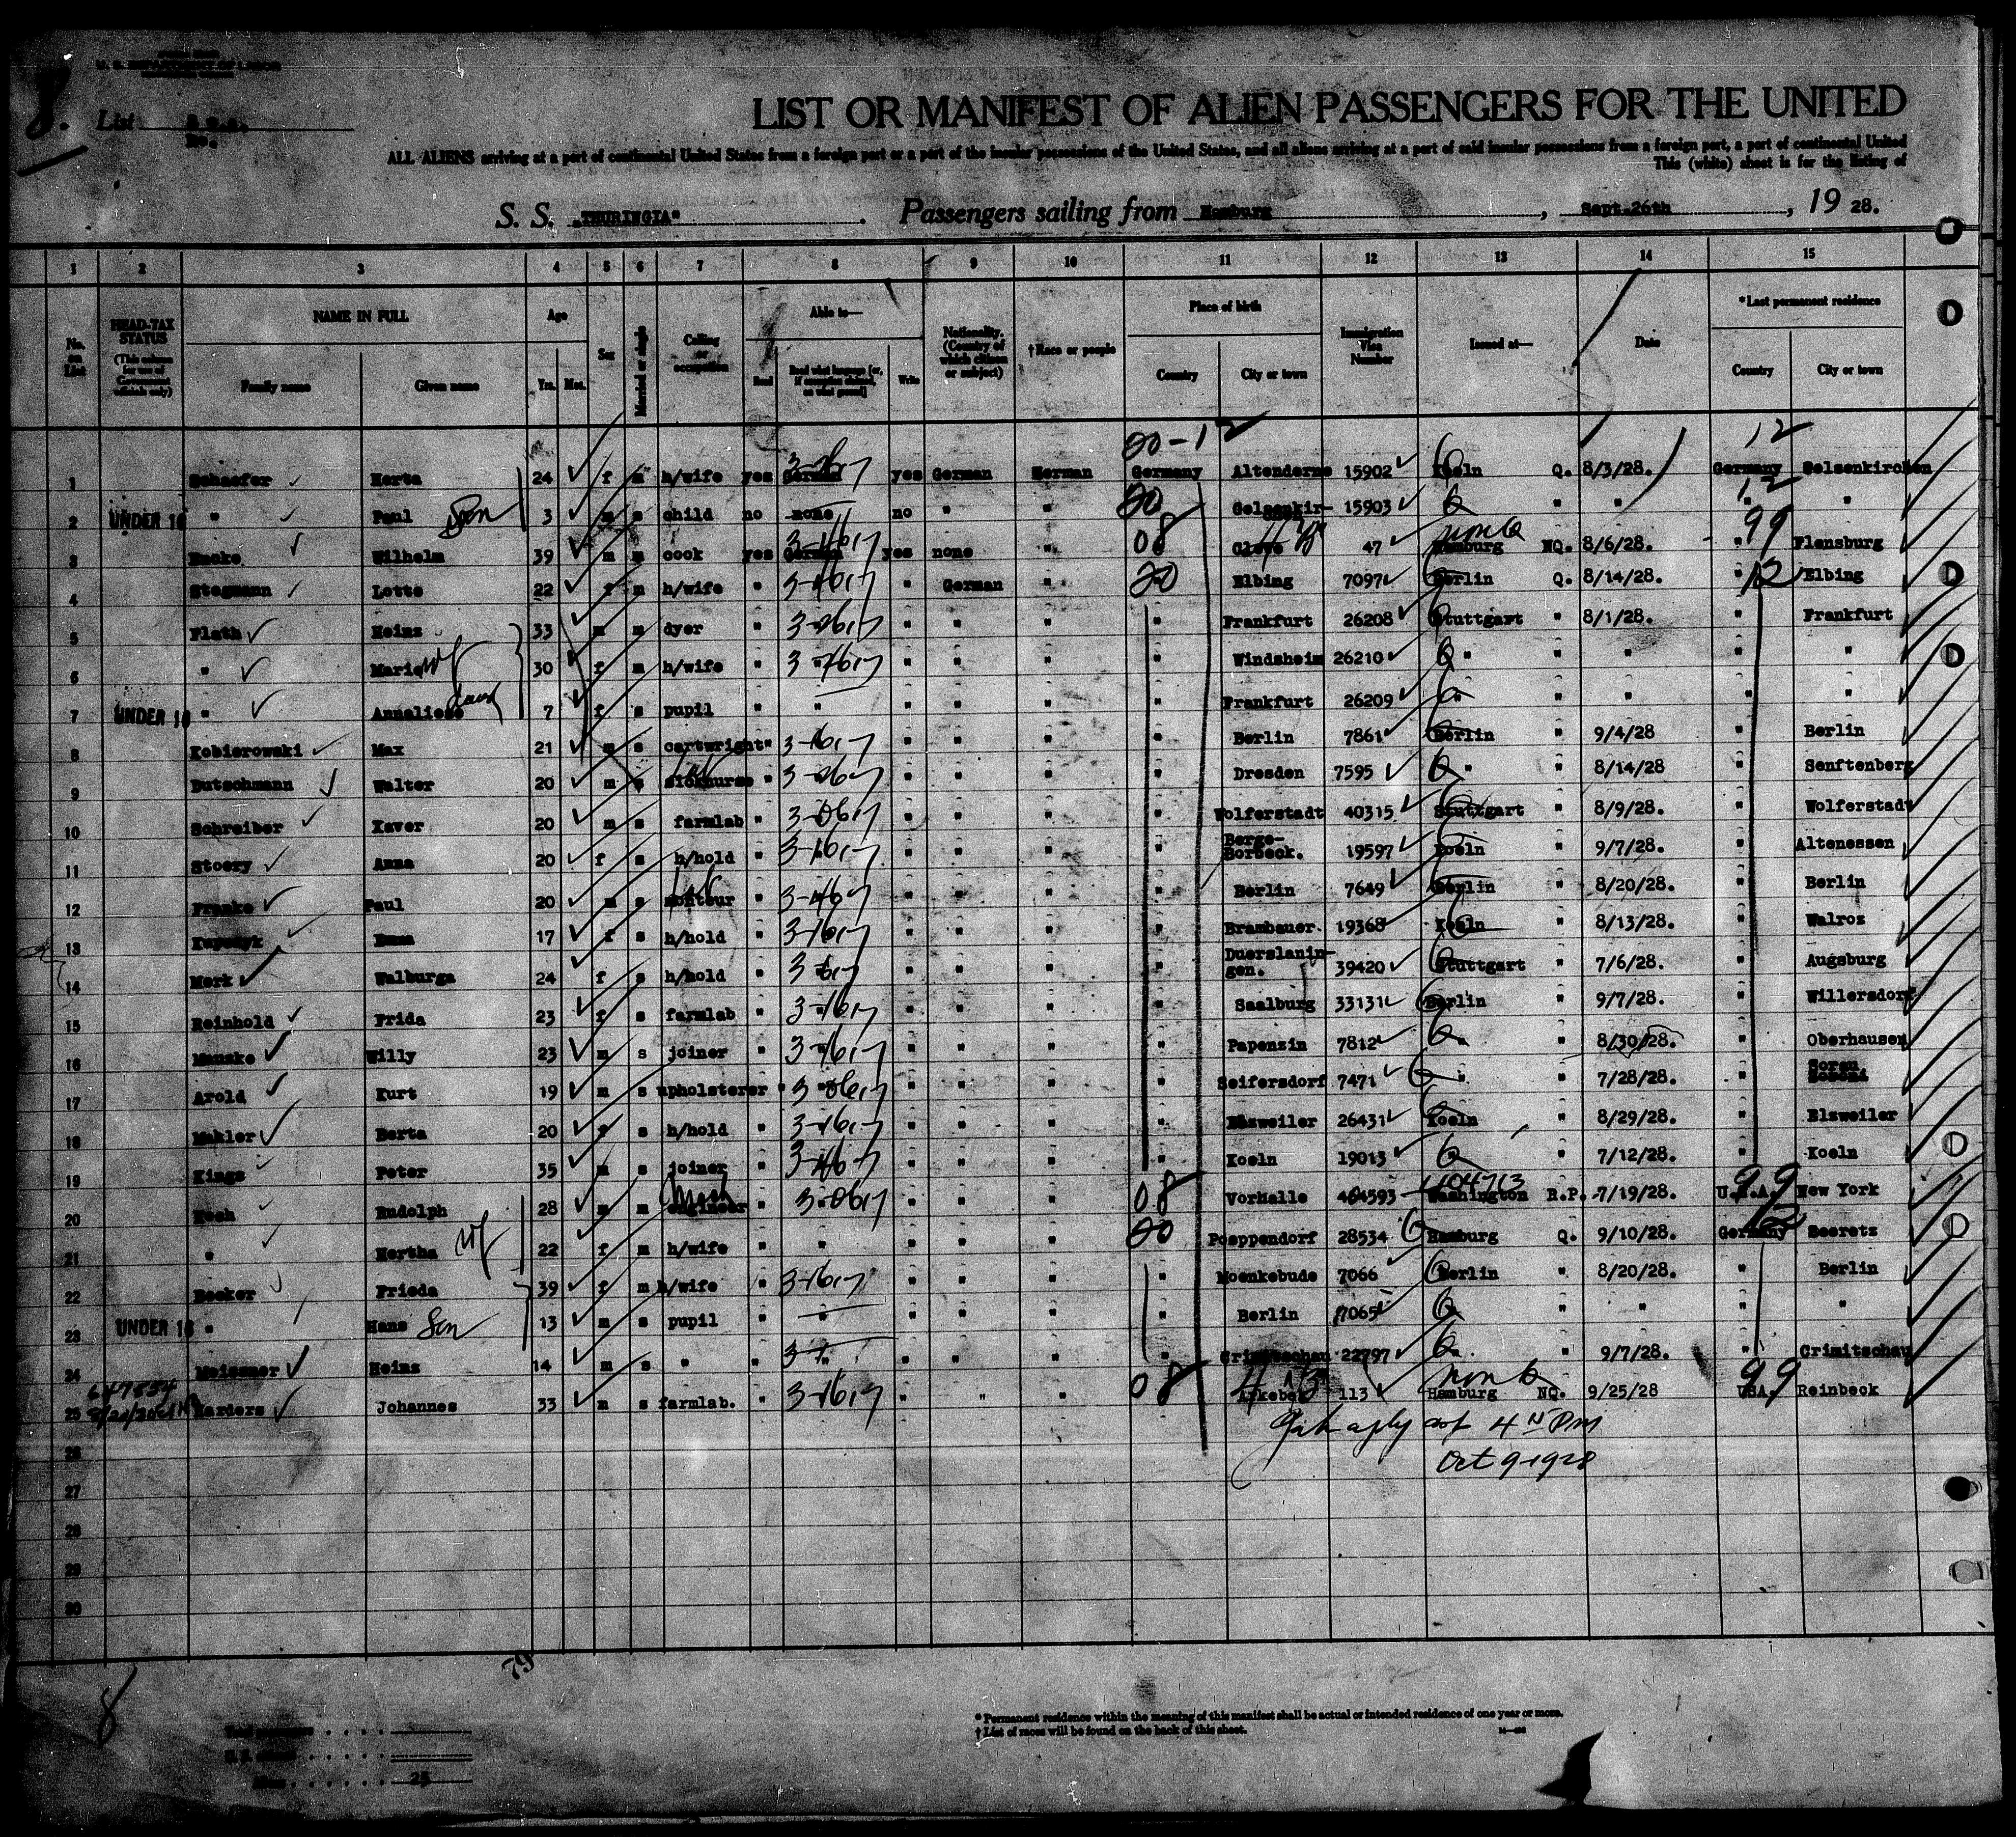 U. S. DEPARTMENT OF LABOR
8.
List
LIST OR MANIFEST OF ALIEN PASSENGERS FOR THE UNITED
ALL ALIENS arriving at a port of continental United States from a foreign port or a port of the insular possessions of the United States, and all aliens arriving at a port of said insular possessions from a foreign port, a port of continental United
This (white) sheet is for the listing of
S. S. "THURINGIA" Passengers sailing from Hamburg, Sept.26th, 19 28.
1 2 3 4 5 6 7 8 9 10 11 12 13 14 15
No. on List
HEAD-TAX STATUS (This column for use of Government officials only)
NAME IN FULL Family name Given name
Age Yrs. Mos.
Sex
Married or single
Calling or occupation
Able to— Read Read what language [or, if exemption claimed, on what ground] Write
Nationality. (Country of which citizen or subject)
†Race or people
Place of birth Country City or town
Immigration Visa Number
Issued at—
Date
*Last permanent residence Country City or town
20-12 12
1 Schaefer Herta 24 f m h/wife yes German yes German German Germany Altenderne 15902 Koeln Q. 8/3/28. Germany Gelsenkirchen
2 UNDER 16 " Paul Son 3 m s child no none no " " 20 Gelsenkir- 15903 " " " 12 " "
3 Wilhelm 39 m m cook yes German yes none " 08 Cleve 47 non Q Hamburg NQ. 8/6/28. " 99 Flensburg
4 Stegmann Lotte 22 f m h/wife " " " German " 20 Elbing 7097 Berlin Q. 8/14/28. " 12 Elbing
5 Flath Heinz 33 m m dyer " " " " " " Frankfurt 26208 Stuttgart " 8/1/28. " Frankfurt
6 " Marie wf 30 f m h/wife " " " " " " Windsheim 26210 " " " " "
7 UNDER 16 " Annaliese daug 7 f s pupil " " " " " " Frankfurt 26209 " " " " "
8 Kobierowski Max 21 m s cartwright " " " " " Berlin 7861 Berlin " 9/4/28 " Berlin
9 Butschmann Walter 20 m s sicknurse " " " " " Dresden 7595 " " 8/14/28 " Senftenberg
10 Schreiber Xaver 20 m s farmlab " " " " " Wolferstadt 40315 Stuttgart " 8/9/28. " Wolferstadt
11 Stoery Anna 20 f s h/hold " " " " " Berge-Borbeck. 19597 Koeln " 9/7/28. " Altenessen
12 Franke Paul 20 m s monteur " " " " " Berlin 7649 Berlin " 8/20/28. " Berlin
13 17 f s h/hold " " " " " Brambauer. 19368 Koeln " 8/13/28. " Walroz
14 Merk Walburga 24 f s h/hold " " " " " 39420 Stuttgart " 7/6/28. " Augsburg
15 Reinhold Frida 23 f s farmlab " " " " " Saalburg 33131 Berlin " 9/7/28. " Willersdorf
16 Manske Willy 23 m s joiner " " " " " Papenzin 7812 " " 8/30/28. " Oberhausen
17 Arold Kurt 19 m s upholsterer " " " " " Seifersdorf 7471 " " 7/28/28. "
18 Makler Berta 20 f s h/hold " " " " " 26431 Koeln " 8/29/28. " Elsweiler
19 Kings Peter 35 m s joiner " " " " " Koeln 19013 " " 7/12/28. " Koeln
20 Koch Rudolph 28 m m engineer " " " " " 08 Vorhalle 464593 1104713 Washington R.P. 7/19/28. U.S.A. 99 New York
21 " Hertha wf 22 f m h/wife " " " " " 20 Poeppendorf 28534 Hamburg Q. 9/10/28. Germany 12 Seeretz
22 Becker Frieda 39 f m h/wife " " " " " Moenkebude 7066 Berlin " 8/20/28. " Berlin
23 UNDER 16 " Hans Son 13 m s pupil " " " " " Berlin 7065 " " " " "
24 Meissner Heinz 14 m s " " " " " " Crimitschau 22797 " " 9/7/28. " Crimitschau
25 Harders Johannes 33 m s farmlab. " " " " " 08 113 non Q Hamburg NQ. 9/25/28 USA. 99 Reinbeck
4 PM
26 Oct 9-1928
27
28
29
30
79
8
Total passengers
U. S. citizens
Aliens 25
* Permanent residence within the meaning of this manifest shall be actual or intended residence of one year or more.
† List of races will be found on the back of this sheet.